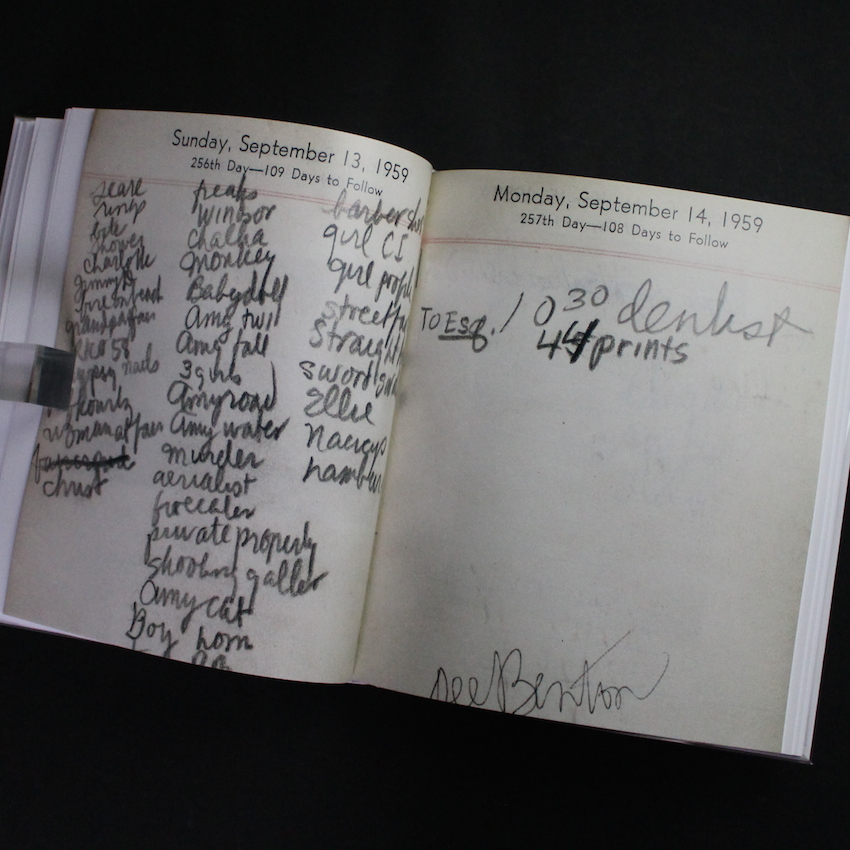 Sunday, September 13, 1959
256th Day—109 Days to Follow
scare
rings
bite
shower
charlotte
Jimmy
58
gypsy nails
woman at fair
christ
freaks
Windsor
chalka
monkey
Babydoll
Amy twil
Amy fall
3 girls
Amyroad
Amy water
murder
aerialist
fireeater
private property
shooting galler
amy cat
Boy horn
barber sho
girl CI
girl profil
streetfa
Straight
sword swa
Ellie
hambur
Monday, September 14, 1959
257th Day—108 Days to Follow
10 30 dentist
To Esq. / 44 prints
see Benton